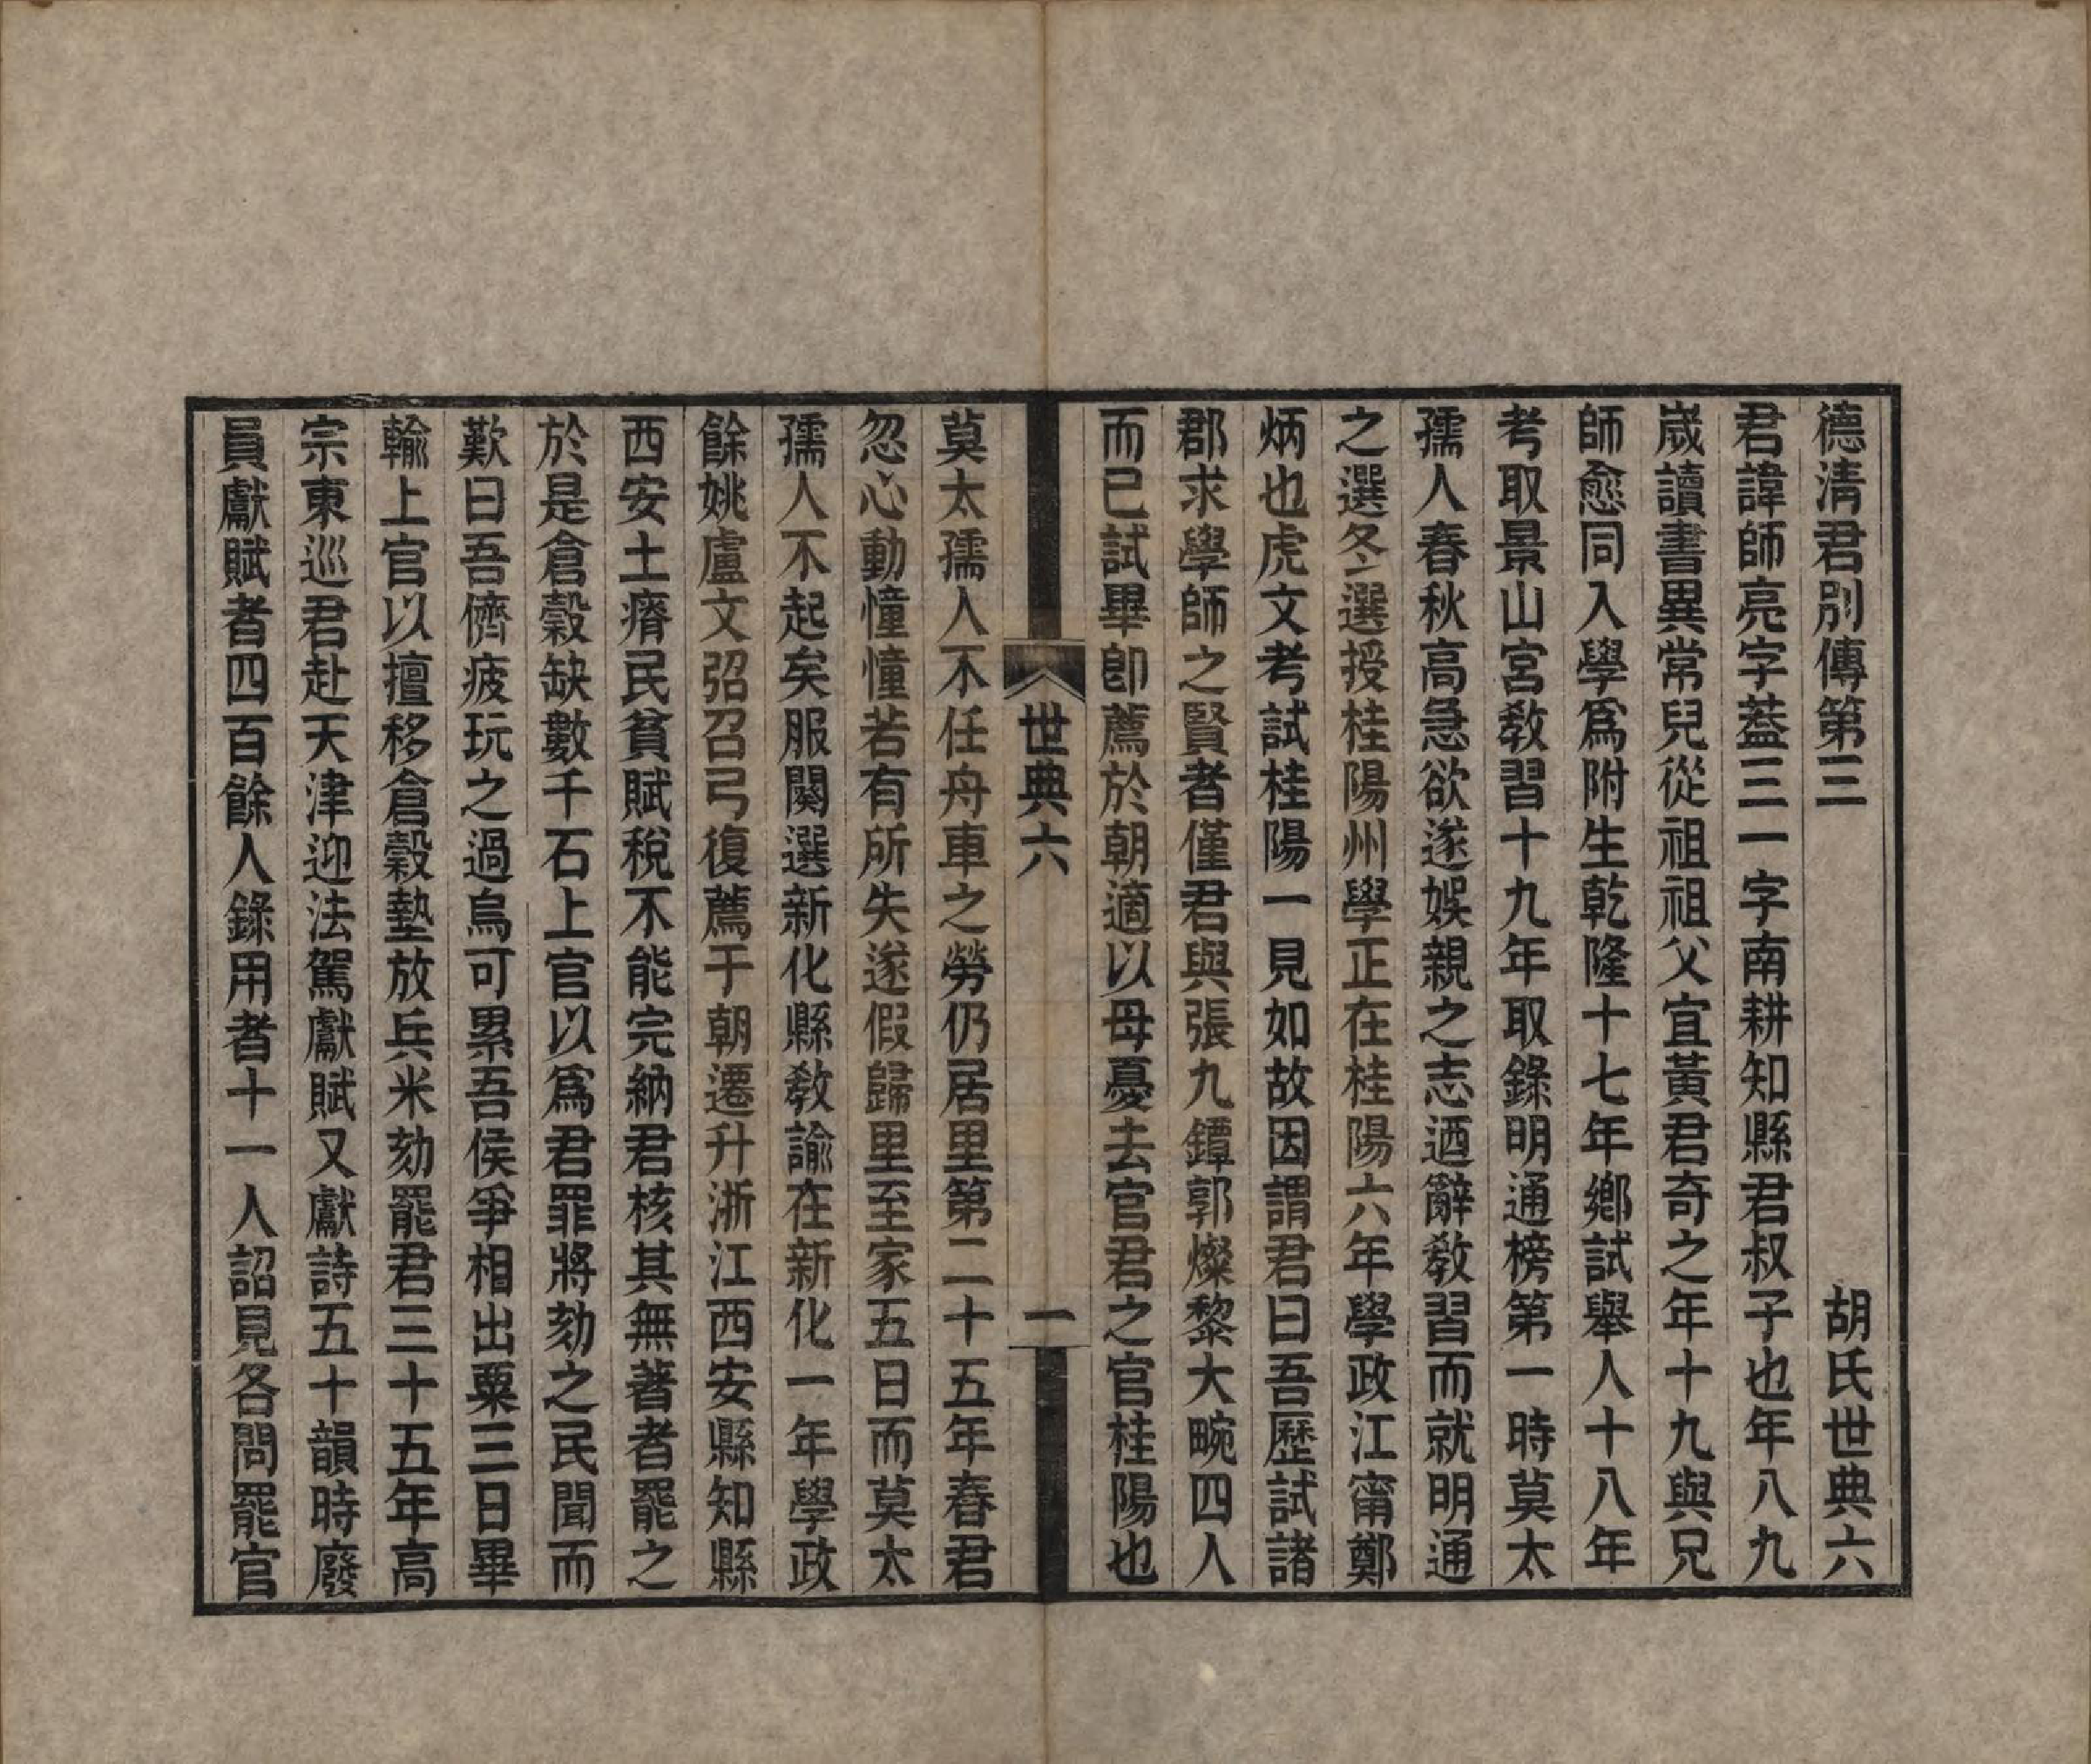 德淸君別傳第三　胡氏世典六
君諱師亮字葢三一字南耕知縣君叔子也年八九
歲讀書異常兒從祖祖父宜黃君奇之年十九與兄
師愈同入學爲附生乾隆十七年鄕試舉人十八年
考取景山宮敎習十九年取錄明通榜第一時莫太
孺人春秋高急欲遂娛親之志迺辭敎習而就明通
之選冬選授桂陽州學正在桂陽六年學政江甯鄭
炳也虎文考試桂陽一見如故因謂君曰吾歷試諸
郡求學師之賢者僅君與張九鐔郭燦黎大畹四人
而已試畢卽薦於朝適以母憂去官君之官桂陽也
世典六　一
莫太孺人不任舟車之勞仍居里第二十五年春君
忽心動憧憧若有所失遂假歸里至家五日而莫太
孺人不起矣服闋選新化縣敎諭在新化一年學政
餘姚盧文弨召弓復薦于朝遷升浙江西安縣知縣
西安土瘠民貧賦稅不能完納君核其無著者罷之
於是倉穀缺數千石上官以爲君罪將劾之民聞而
歎曰吾儕疲玩之過烏可累吾侯爭相出粟三日畢
輸上官以擅移倉穀墊放兵米劾罷君三十五年高
宗東巡君赴天津迎法駕獻賦又獻詩五十韻時廢
員獻賦者四百餘人錄用者十一人詔見各問罷官